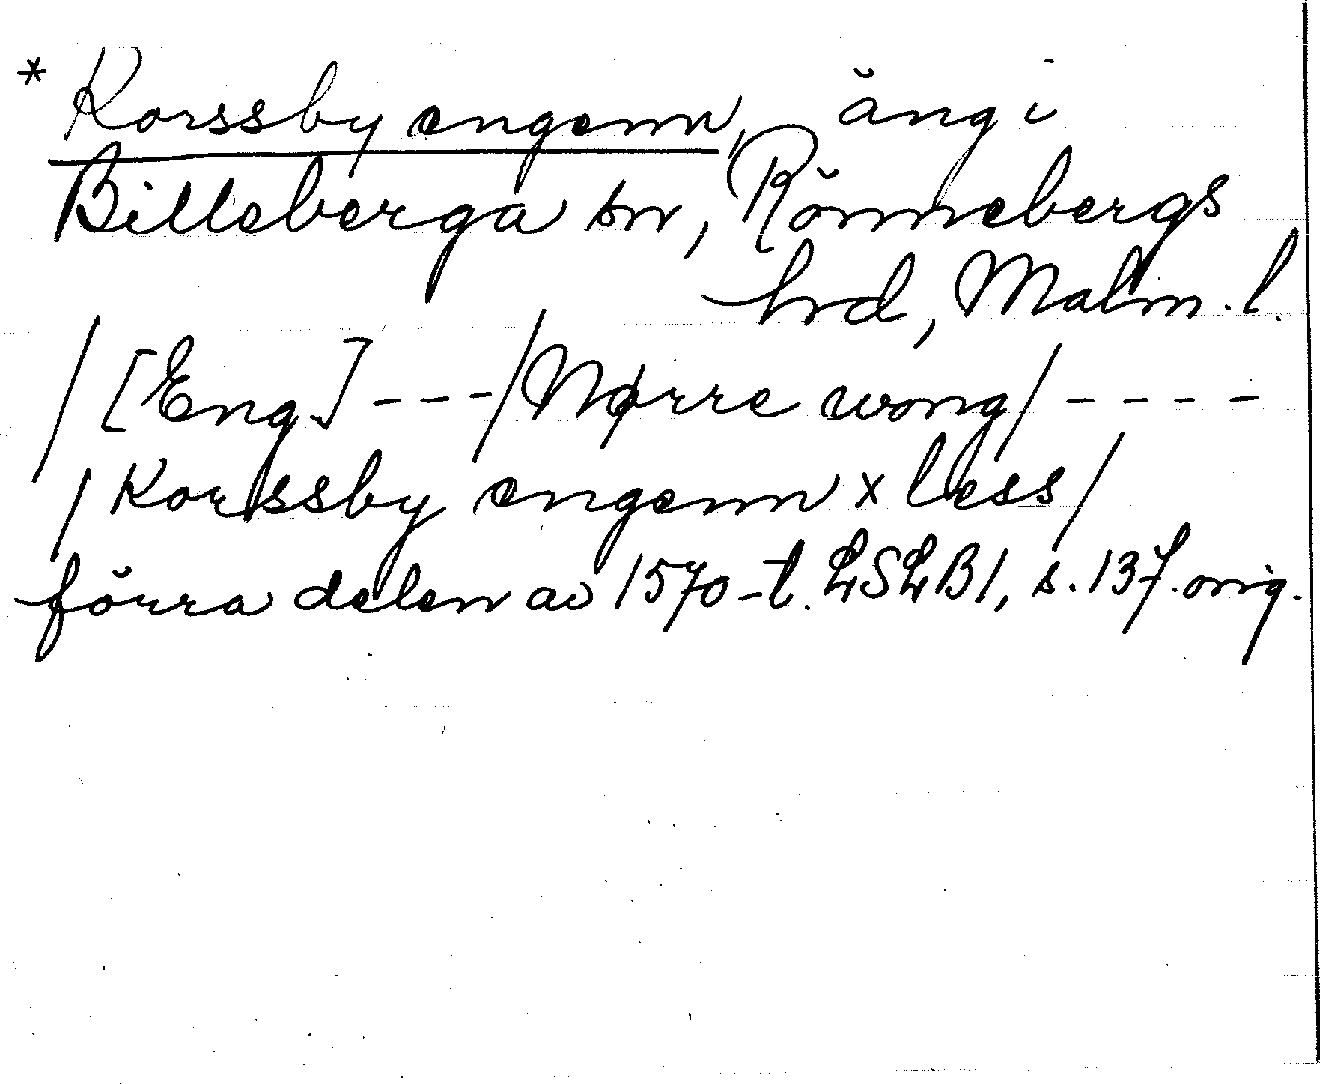 * Korssby engenn, äng i
Billeberga sn, Rönnebergs
hrd, Malm. l.
/ [Eng.] - - - / Nørre wong / - - - -
/ Korssby engenn x less /
förra delen av 1570-t. LSLB1, s. 137. orig.